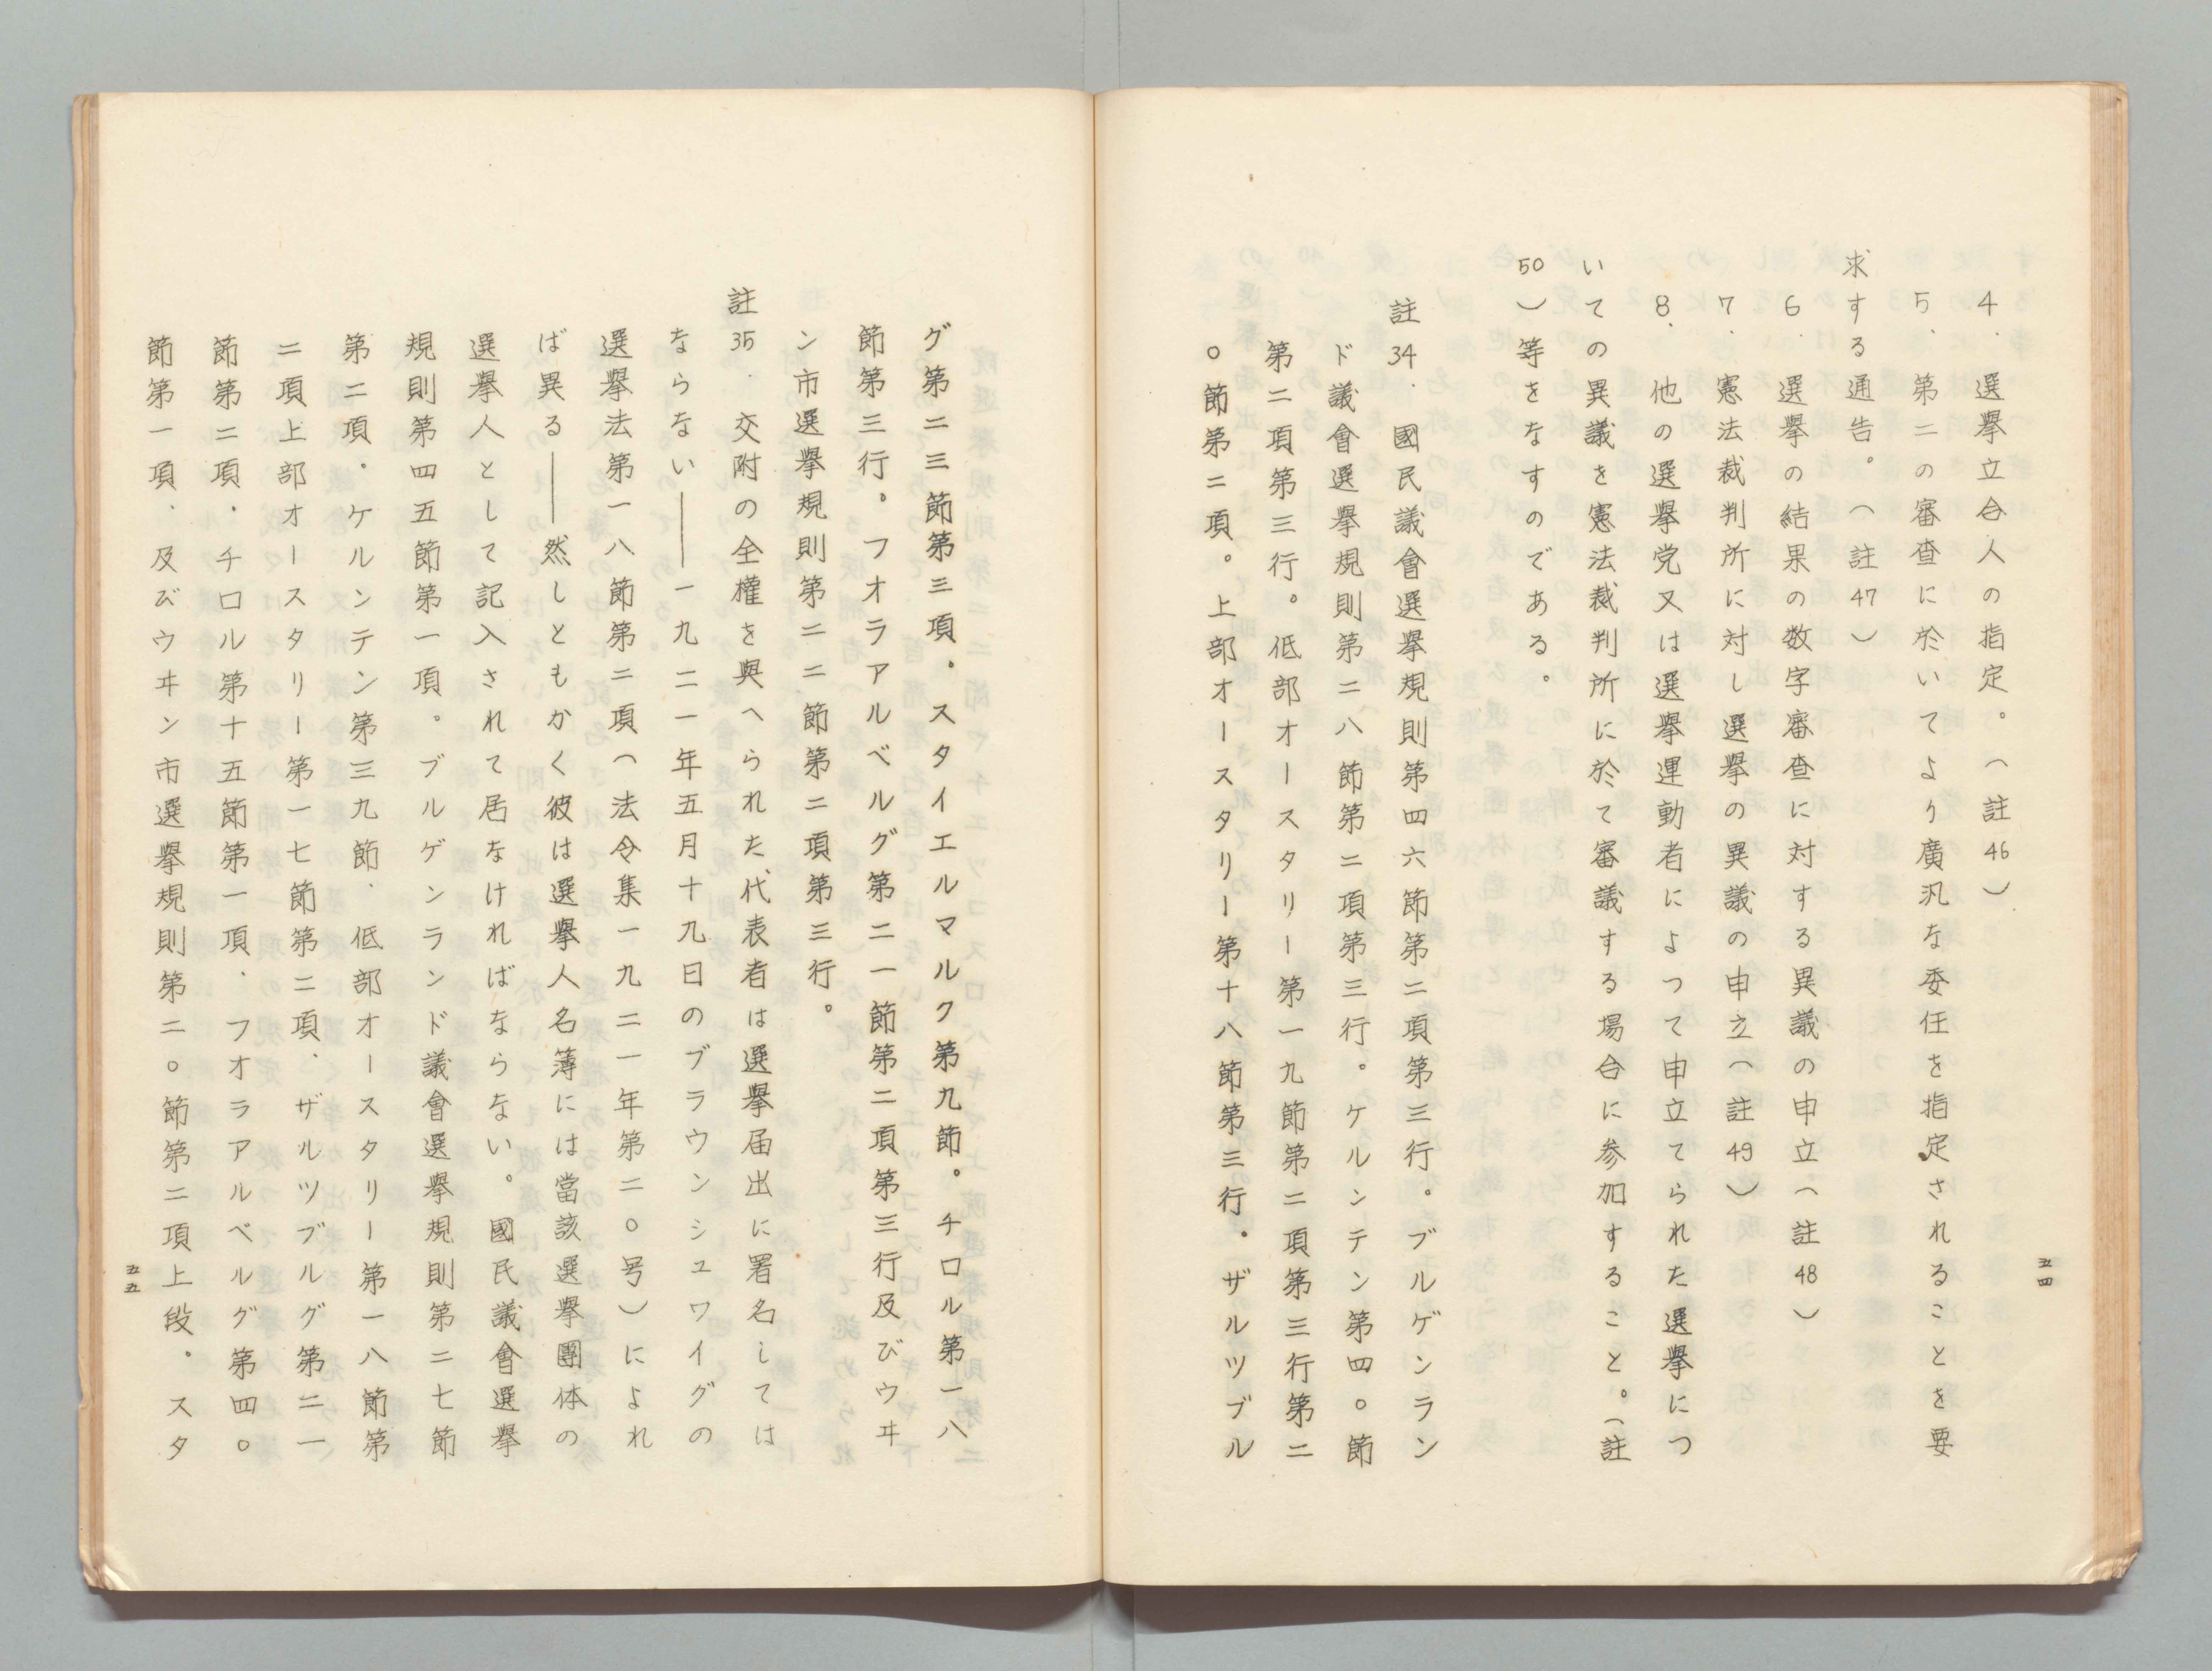 4. 選擧立合人の指定。(註46)
5、第二の審査に於いてより廣汎な委任を指定されることを要
求する通告。(註47)
6. 選擧の結果の数字審査に対する異議の申立(註48)
7. 憲法裁判所に対し選擧の異議の申立(註49)
8、他の選擧党又は選擧運動者によつて申立てられた選擧につ
いての異議を憲法裁判所に於て審議する場合に参加すること。(註
50)等をなすのである。
註34. 國民議會選擧規則第四六節第二項第三行。ブルゲンラン
ド議會選擧規則第二八節第二項第三行。ケルンテン第四〇節
第二項第三行。低部オースタリー第一九節第二項第三行第二
〇節第二項。上部オースタリー第十八節第三行.ザルツブル
五四
グ第二三節第三項.スタイエルマルク第九節。チロル第一八
節第三行。フオラアルベルグ第二一節第二項第三行及びウヰ
ン市選擧規則第二二節第二項第三行。
註35. 交附の全權を與へられた代表者は選擧届出に署名しては
ならない——一九二一年五月十九日のブラウンシュワイグの
選擧法第一八節第二項(法令集一九二一年第二〇号)によれ
ば異る——然しともかく彼は選擧人名簿には當該選擧團体の
選擧人として記入されて居なければならない。國民議會選擧
規則第四五節第一項。ブルゲンランド議會選擧規則第二七節
第二項.ケルンテン第三九節.低部オースタリー第一八節第
二項上部オースタリー第一七節第二項.ザルツブルグ第二一
節第二項.チロル第十五節第一項.フオラアルベルグ第四〇
節第一項.及びウヰン市選擧規則第二〇節第二項上段.スタ
五五